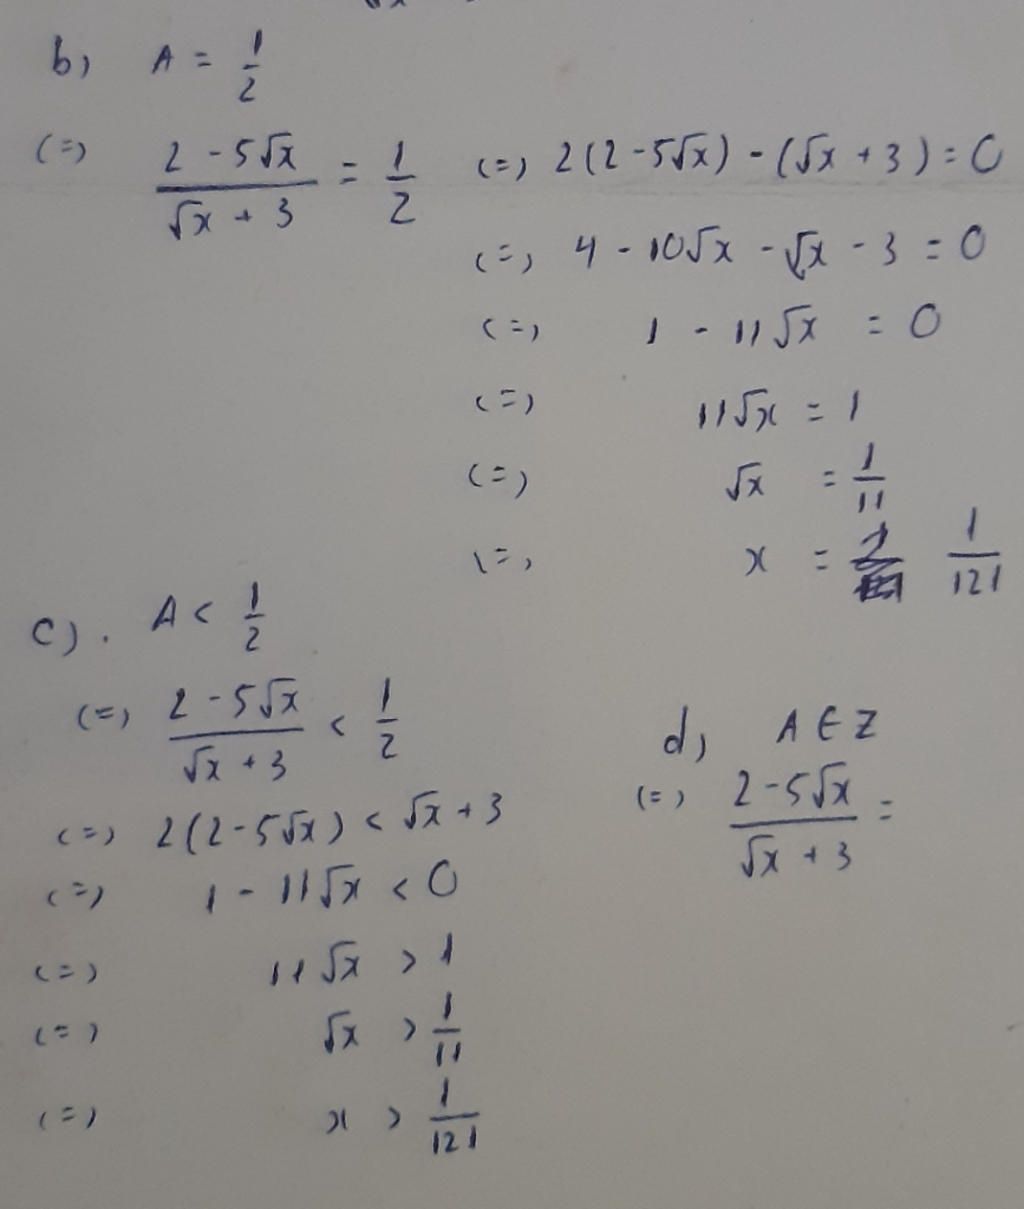 b) A = 1/2
(=) (2 - 5√x)/(√x + 3) = 1/2 (=) 2(2 - 5√x) - (√x + 3) = 0
(=) 4 - 10√x - √x - 3 = 0
(=) 1 - 11√x = 0
(=) 11√x = 1
(=) √x = 1/11
(=) x = 1/121
c). A < 1/2
(=) (2 - 5√x)/(√x + 3) < 1/2
(=) 2(2 - 5√x) < √x + 3
(=) 1 - 11√x < 0
(=) 11√x > 1
(=) √x > 1/11
(=) x > 1/121
d) A ∈ Z
(=) (2 - 5√x)/(√x + 3) =